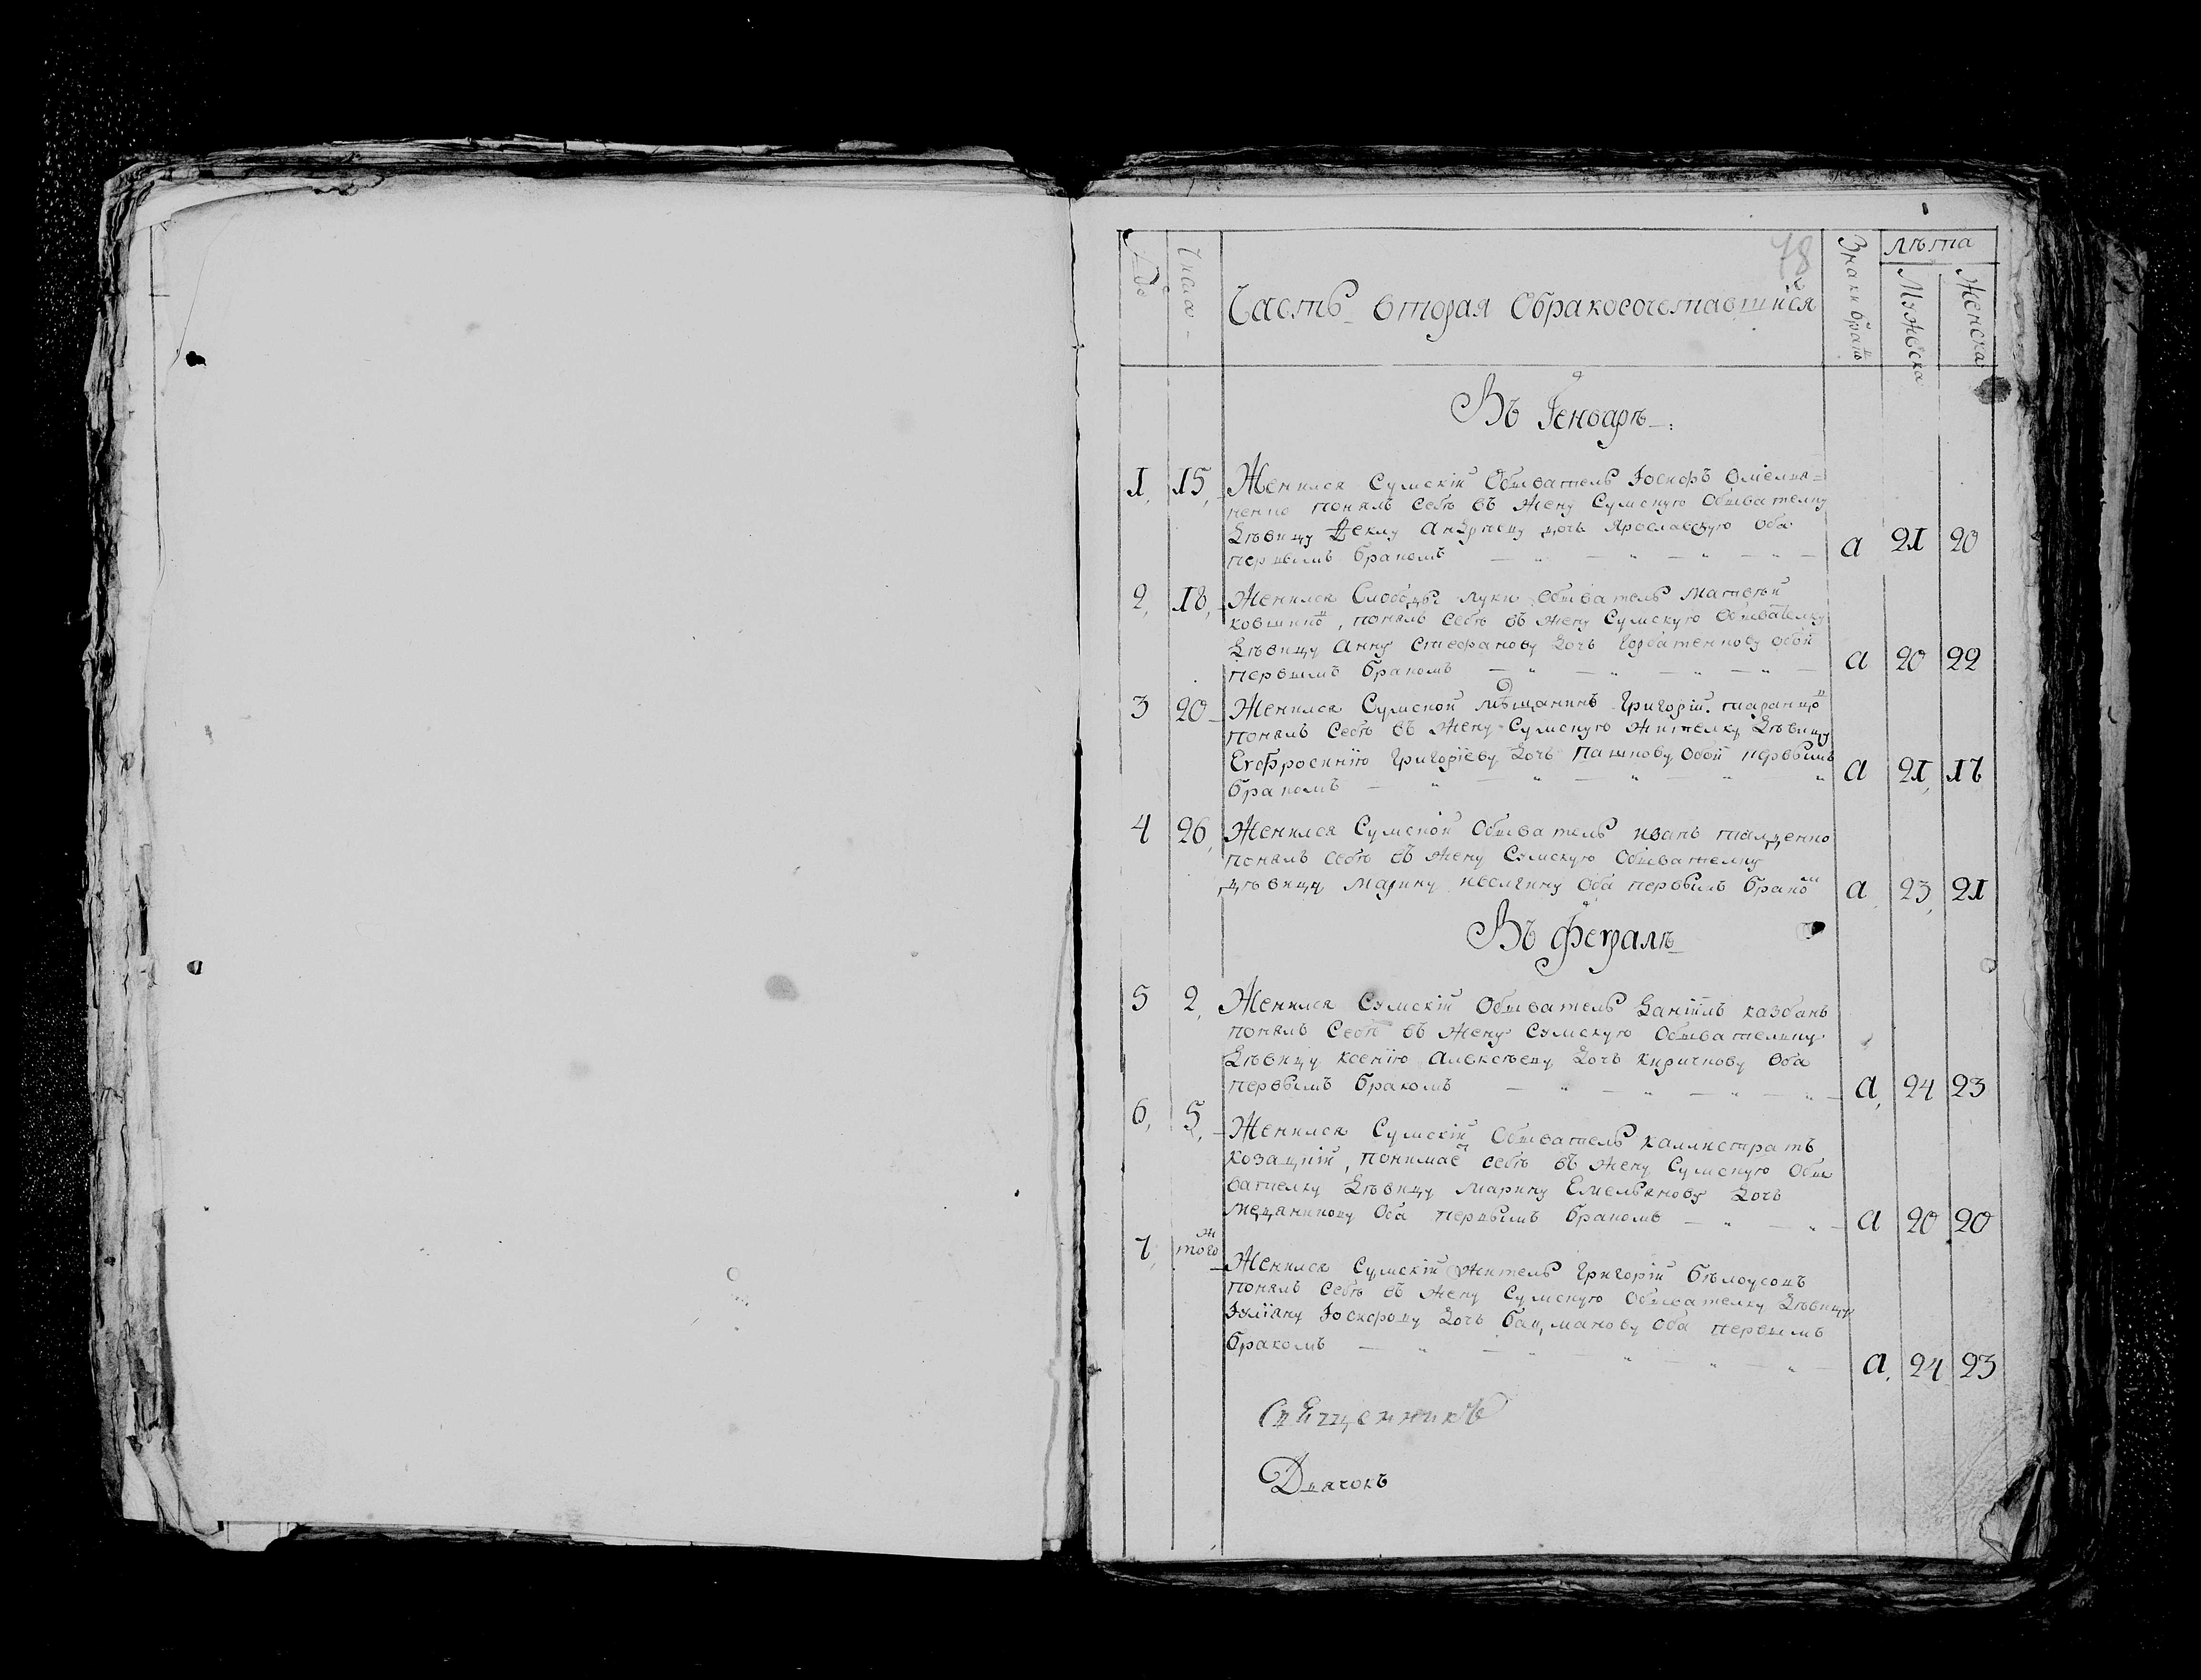 78
№ Числа Часть вторая Обракосочетавшихся Знаки брачн лѣта
Мужеска Женска
Въ Генварѣ
1, 15, Женился Сумскій Обыватель Іосифъ Омелья=
ненко понялъ себѣ въ жену Сумскую Обывателку
дѣвицу Ѳеклу Андрѣеву дочь Ярославскую Оба
первымъ бракомъ а 21 20
2, 18, Женился Слободы луки Обыватель Матѳѣй
Ковшико, понялъ себѣ въ жену Сумскую Обывателку
дѣвицу Анну Стефанову дочь Горбатенкову обои
первымъ бракомъ а 20 22
3 20 Женился Сумской мѣщанинъ Григорій
понялъ себѣ въ жену Сумскую жителку дѣвицу
Егфросинію Григоріеву дочь Пашкову Обои первымъ
бракомъ а 21, 17
4 26, Женился Сумской Обыватель иванъ
понялъ себѣ въ жену Сумскую Обывателку
дѣвицу Марину Оба первымъ брако а 23, 21
Въ Февралѣ
5 2, Женился Сумскій Обыватель Даніилъ казбанъ
понялъ Себѣ въ жену Сумскую Обывателку
дѣвицу ксенію Алексѣеву дочь киричкову Оба
первымъ бракомъ а, 24 23
6, 5, Женился Сумскій Обыватель каллистратъ
козацкій, понимае себѣ въ жену Сумскую Обы
вателку дѣвицу Марину Емельянову дочь
Медяникову Оба первымъ бракомъ а 20 20
7, того ж Женился Сумскій житель Григорій бѣлоусовъ
понялъ себѣ въ жену Сумскую Обывателку дѣвицу
Іуліану Іосифову дочь бацманову Оба первымъ
бракомъ а, 24 23
Священникъ
Дьячокъ